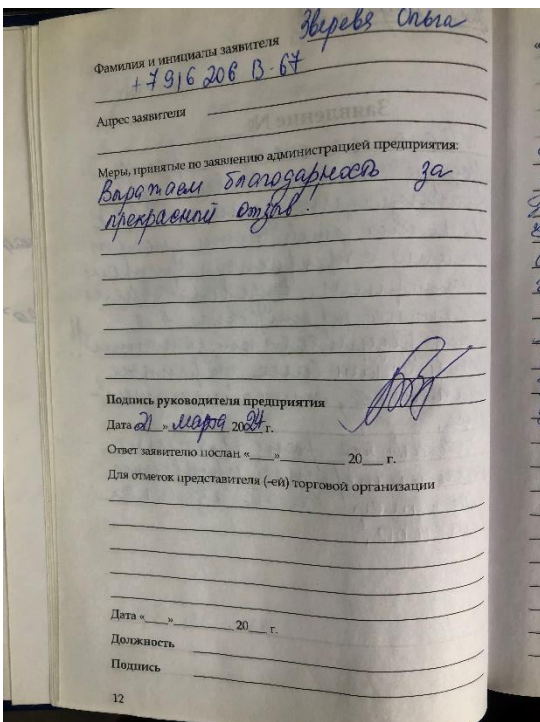 Фамилия и инициалы заявителя Зверева Ольга
+7 916 206 13-67
Адрес заявителя
Меры, принятые по заявлению администрацией предприятия:
Выражаем благодарность за
прекрасный отзыв!
Подпись руководителя предприятия
Дата «21» марта 2024 г.
Ответ заявителю послан «___»__________ 20___ г.
Для отметок представителя (-ей) торговой организации
Дата «___»__________ 20___ г.
Должность
Подпись
12